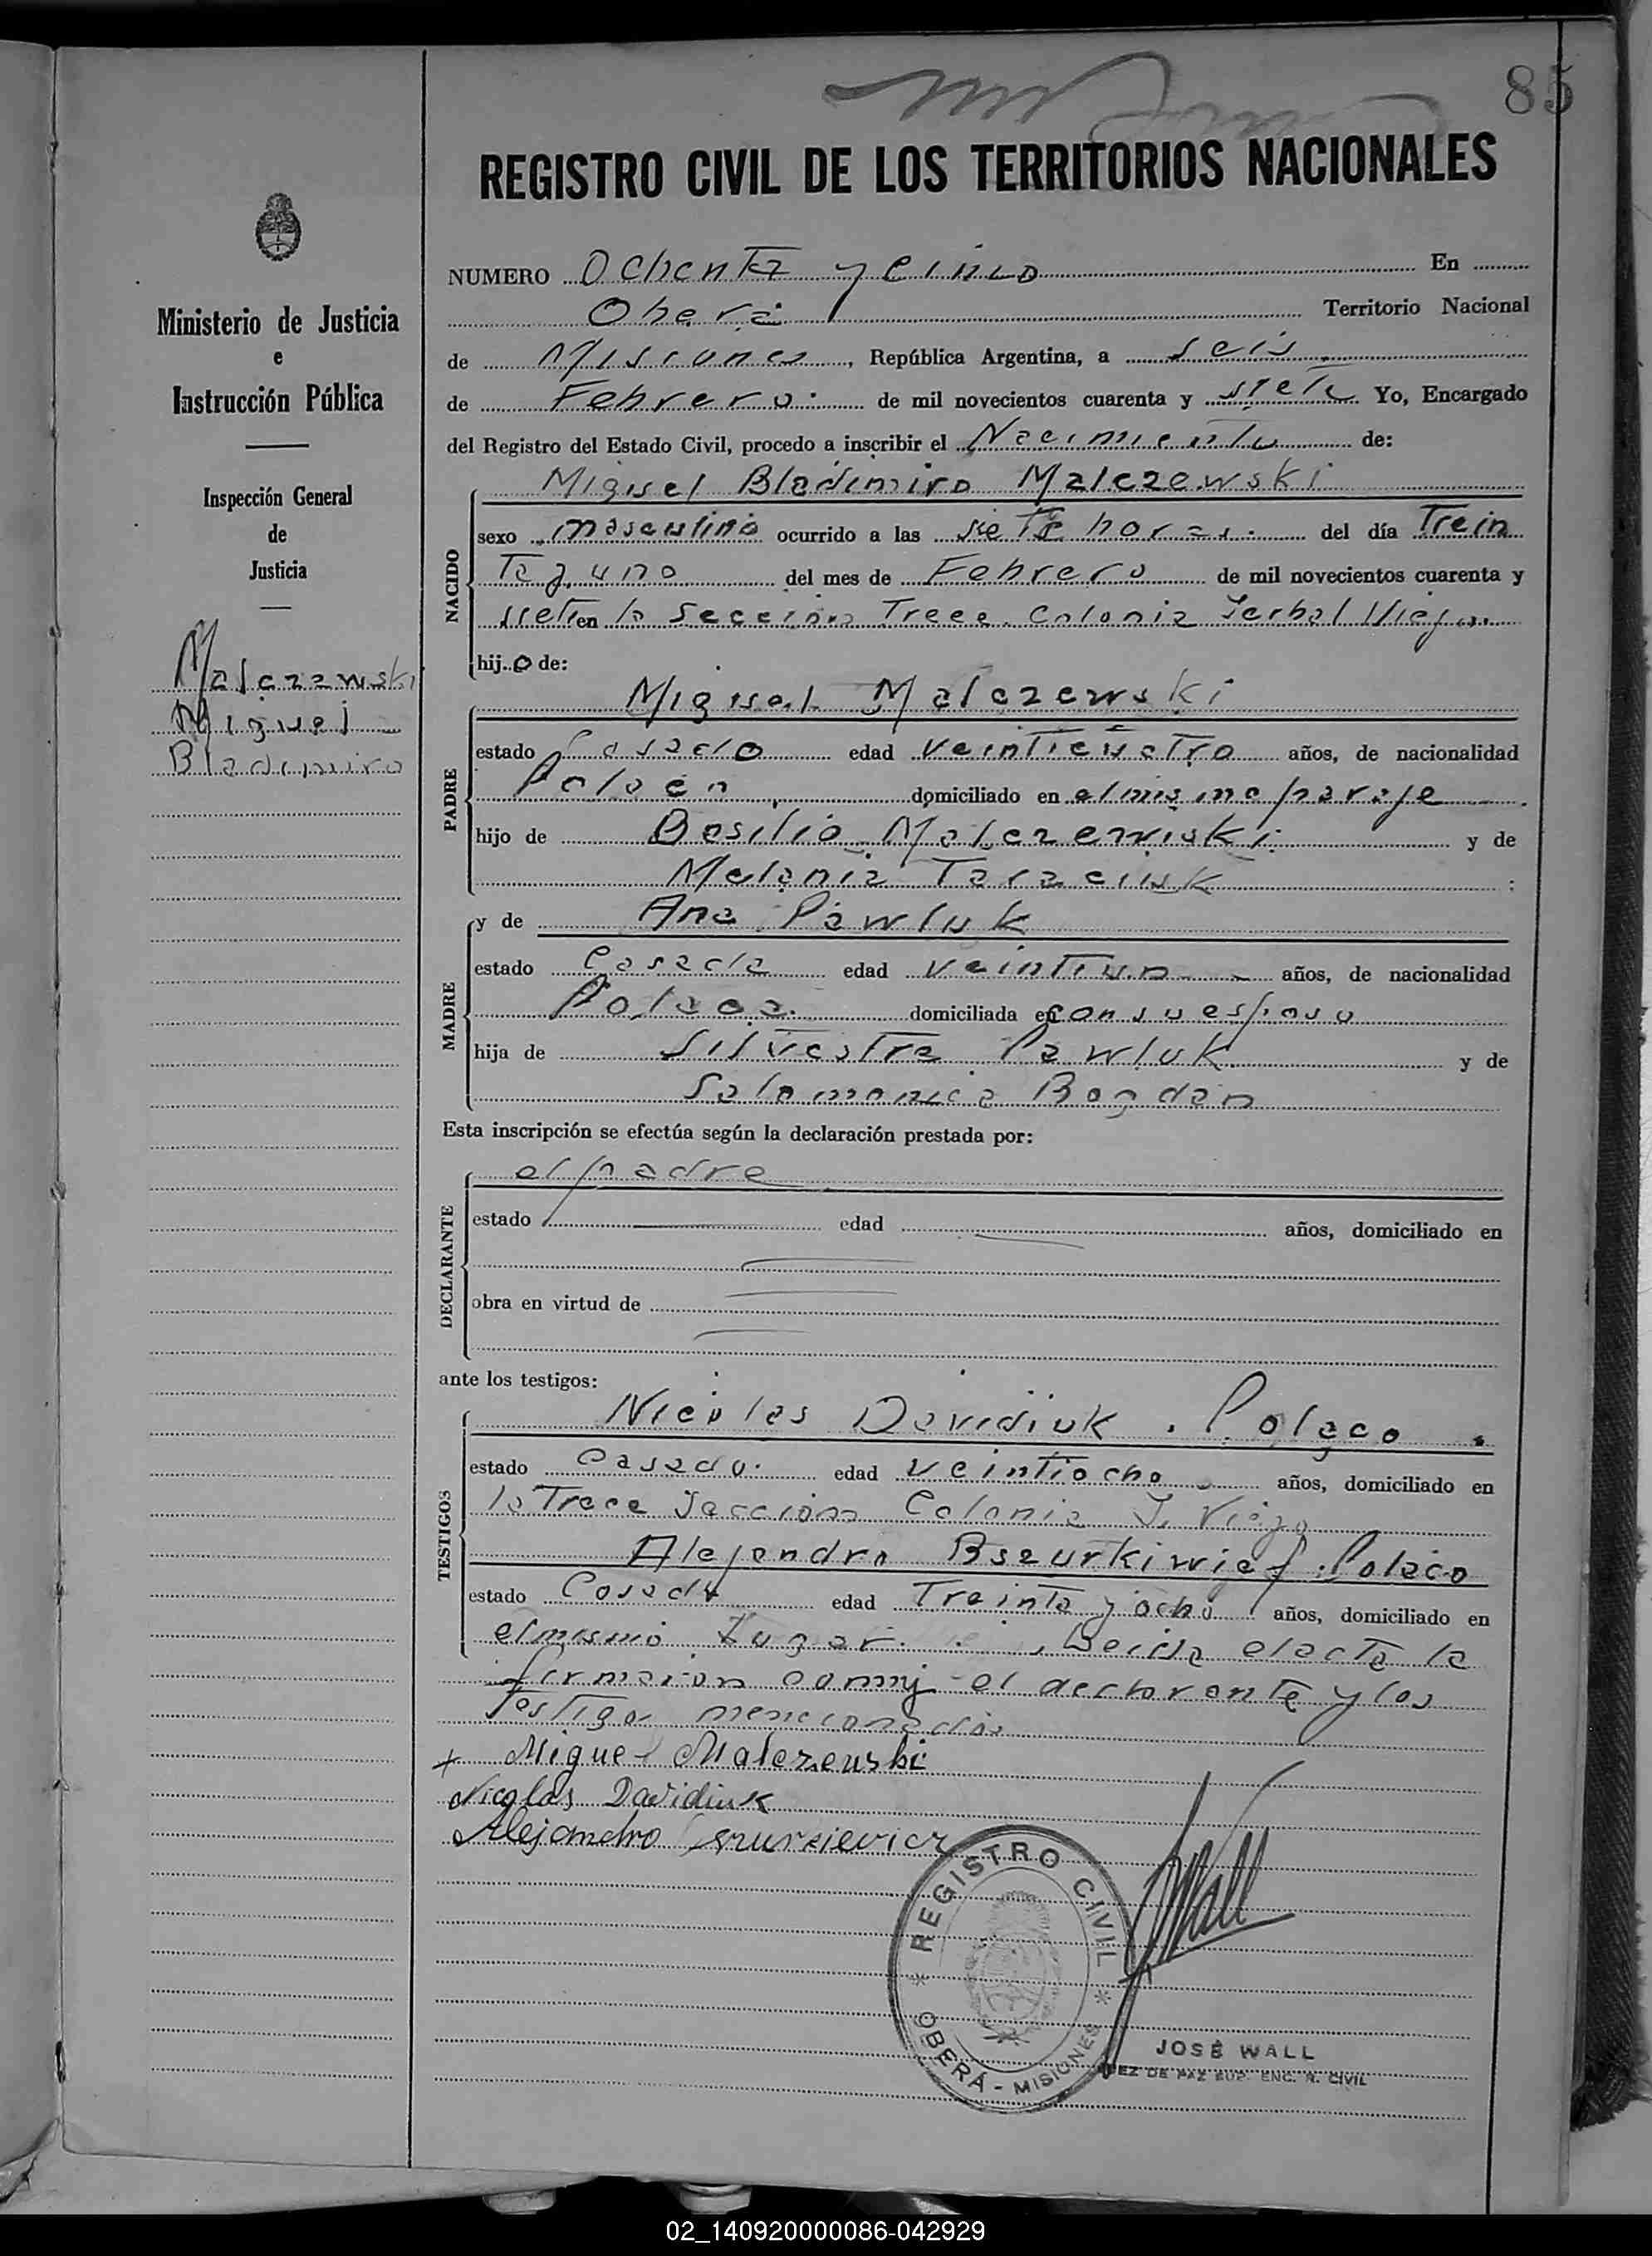 85
REGISTRO CIVIL DE LOS TERRITORIOS NACIONALES
Ministerio de Justicia
e
Instrucción Pública
Inspección General
de
Justicia
Malczewski
Miguel
Bladimiro
NUMERO Ochenta y cinco En
Oberá Territorio Nacional
de Misiones, República Argentina, a seis
de Febrero de mil novecientos cuarenta y siete Yo, Encargado
del Registro del Estado Civil, procedo a inscribir el Nacimiento de:
NACIDO
Miguel Bladimiro Malczewski
sexo masculino ocurrido a las siete horas. del día Trein
Ta y uno del mes de Febrero de mil novecientos cuarenta y
siete en la Sección Trece Colonia Yerbal Viejo
hijo de:
PADRE
Miguel Malczewski
estado Casado edad veinticuatro años, de nacionalidad
Polaca domiciliado en el mismo paraje
hijo de Basilio Malczewiski y de
Melania Taraciuk :
MADRE
y de Ana Pawluk
estado Casada edad veintiun años, de nacionalidad
Polaca domiciliada en con su esposo
hija de Silvestre Pawluk y de
Salomonica Bogdan
Esta inscripción se efectúa según la declaración prestada por:
DECLARANTE
el padre
estado edad años, domiciliado en
obra en virtud de
ante los testigos:
TESTIGOS
Nicolas Davidiuk . Polaco .
estado Casado. edad veintiocho años, domiciliado en
la Trece Sección Colonia Y. Viejo
Alejandro Polaco
estado Casado edad Treinta y ocho años, domiciliado en
el mismo Lugar. Leida el acta la
firmaron conmj el declarante y los
Testigos mencionados
+ Miguel Malczewski
Nicolas Davidiuk
Alejandro
REGISTRO CIVIL
OBERÁ - MISIONES
JWall
JOSÉ WALL
JUEZ DE PAZ SUP. ENC. R. CIVIL
02_140920000086-042929